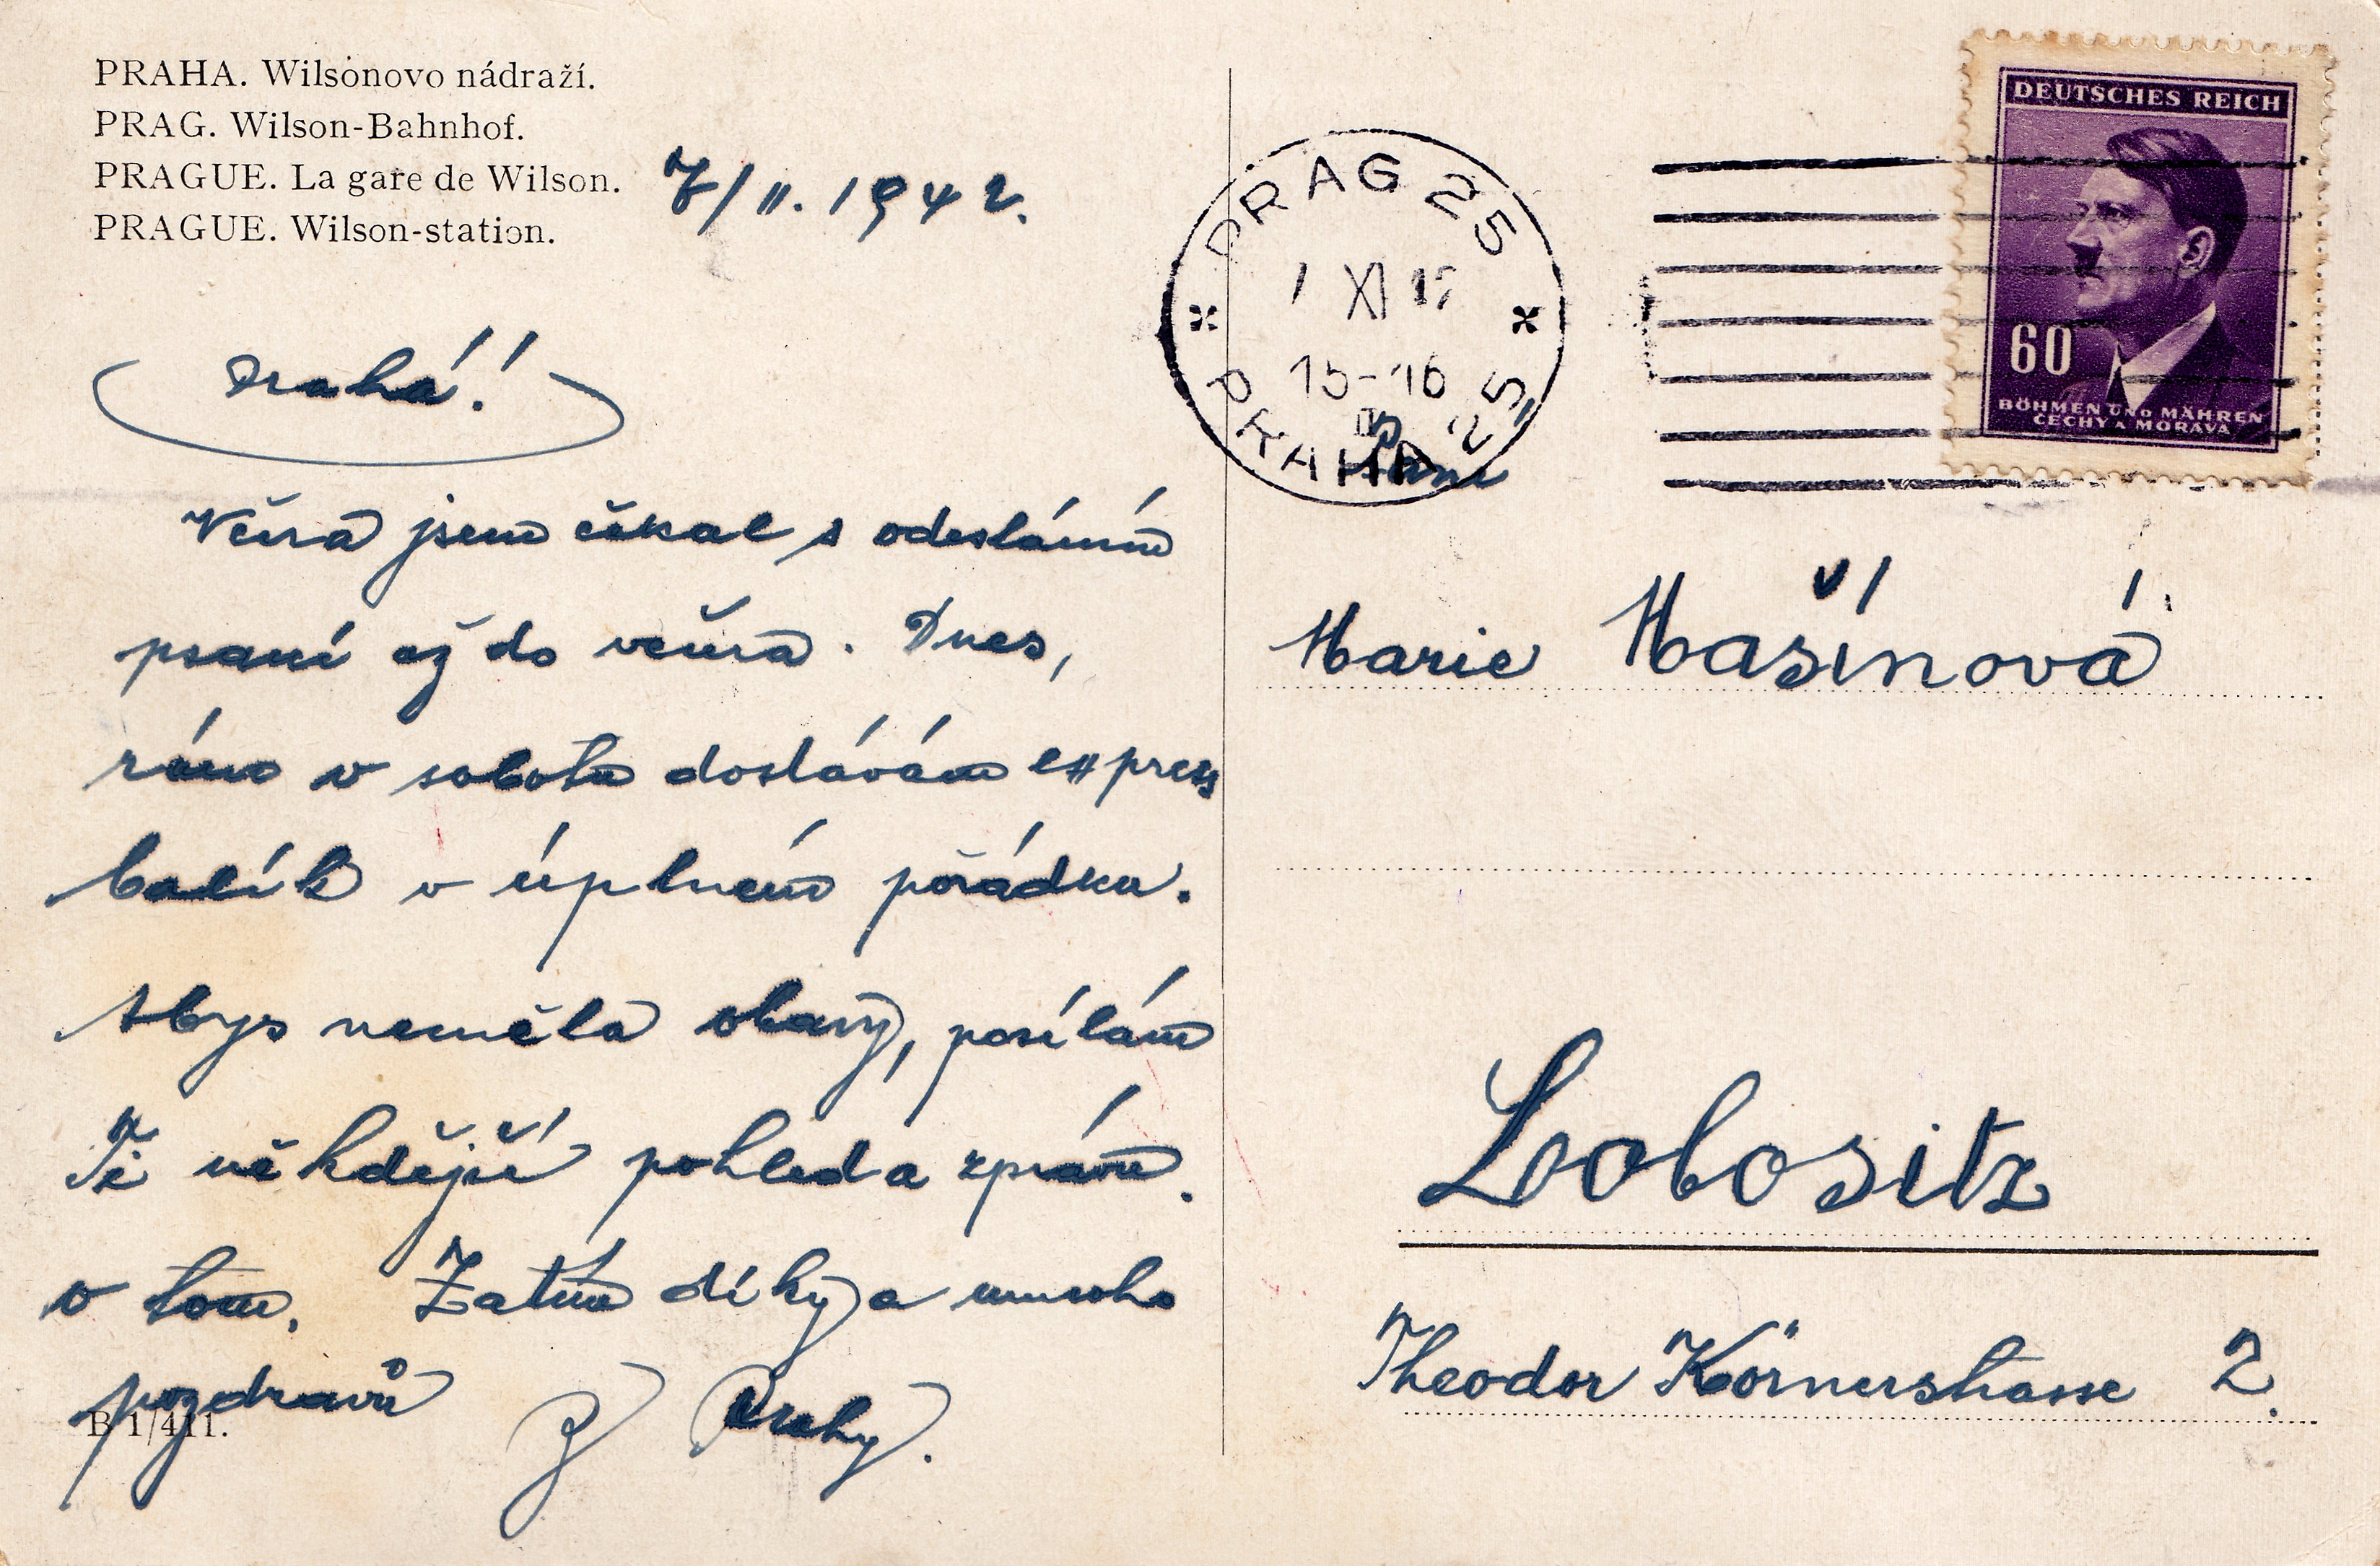 PRAHA. Wilsonovo nádraží.
PRAG. Wilson-Bahnhof.
PRAGUE. La gare de Wilson.
PRAGUE. Wilson-station.
7/11. 1942.
Drahá!
Včera jsem čekal s odesláním
psaní až do večera. Dnes,
ráno v sobotu dostávám express
balík v úplném pořádku.
Abys neměla obavy, posílám
Ti někdejší pohled a zprávu
o tom. Zatím díky a mnoho
pozdravů Z Prahy.
B 1/411.
PRAG 25
XI
15-16
PRAHA 25
DEUTSCHES REICH
60
BÖHMEN UND MÄHREN
ČECHY A MORAVA
Marie Mašínová
Lobositz
Theodor Körnerstrasse 2.